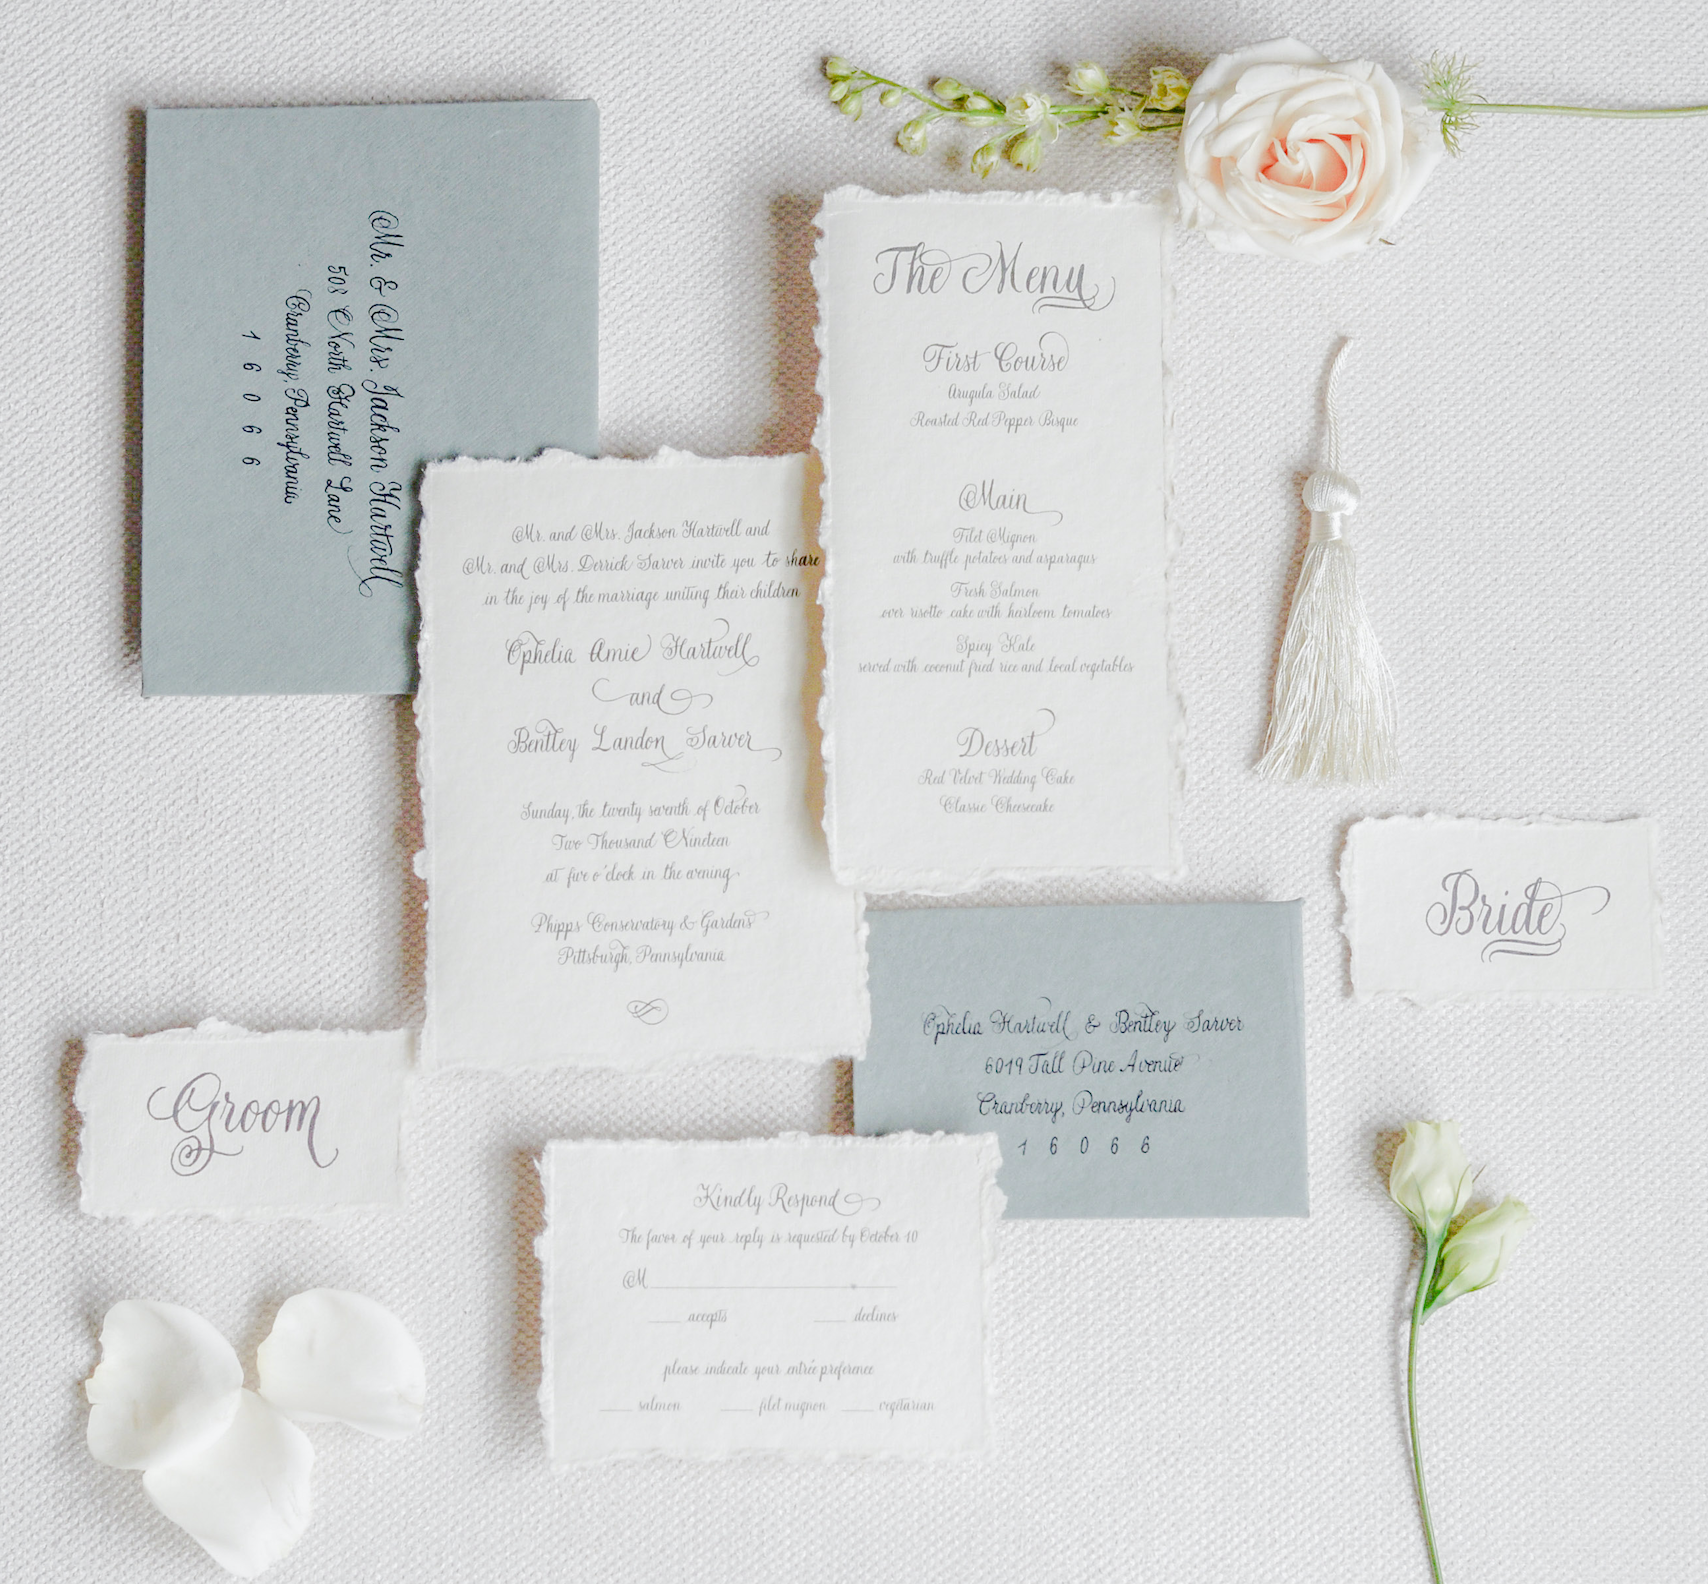 Mr. & Mrs. Jackson Hartwell
508 North Hartwell Lane
Cranberry, Pennsylvania
16066
Mr. and Mrs. Jackson Hartwell and
Mr. and Mrs. Derrick Sarver invite you to share
in the joy of the marriage uniting their children
Ophelia Amie Hartwell
and
Bentley Landon Sarver
Sunday, the twenty seventh of October
Two Thousand Nineteen
at five o'clock in the evening
Phipps Conservatory & Gardens
Pittsburgh, Pennsylvania
The Menu
First Course
Arugula Salad
Roasted Red Pepper Bisque
Main
Filet Mignon
with truffle potatoes and asparagus
Fresh Salmon
over risotto cake with heirloom tomatoes
Spicy Kale
served with coconut fried rice and local vegetables
Dessert
Red Velvet Wedding Cake
Classic Cheesecake
Bride
Groom
Ophelia Hartwell & Bentley Sarver
6019 Tall Pine Avenue
Cranberry, Pennsylvania
16066
Kindly Respond
The favor of your reply is requested by October 10
M
accepts declines
please indicate your entrée preference
salmon filet mignon vegetarian